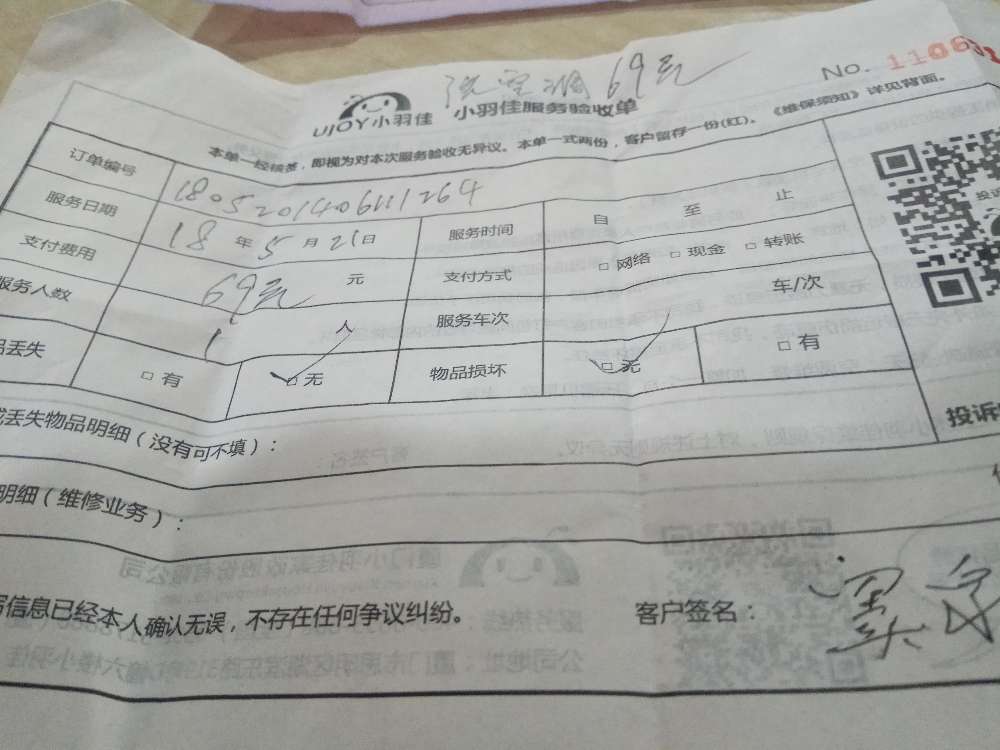 洗空调69元
No. 1106
UJOY小羽佳 小羽佳服务验收单
本单一经核签，即视为对本次服务验收无异议。本单一式两份，客户留存一份(红)。《维保须知》详见背面。
订单编号
服务日期 18年5月21日 服务时间 自 至 止
支付费用 69元 元 支付方式 □网络 □现金 □转账
服务人数 1 人 服务车次 车/次
丢失 □有 □无 物品损坏 □无 □有
丢失物品明细（没有可不填）：
投诉
明细（维修业务）：
信息已经本人确认无误，不存在任何争议纠纷。 客户签名：